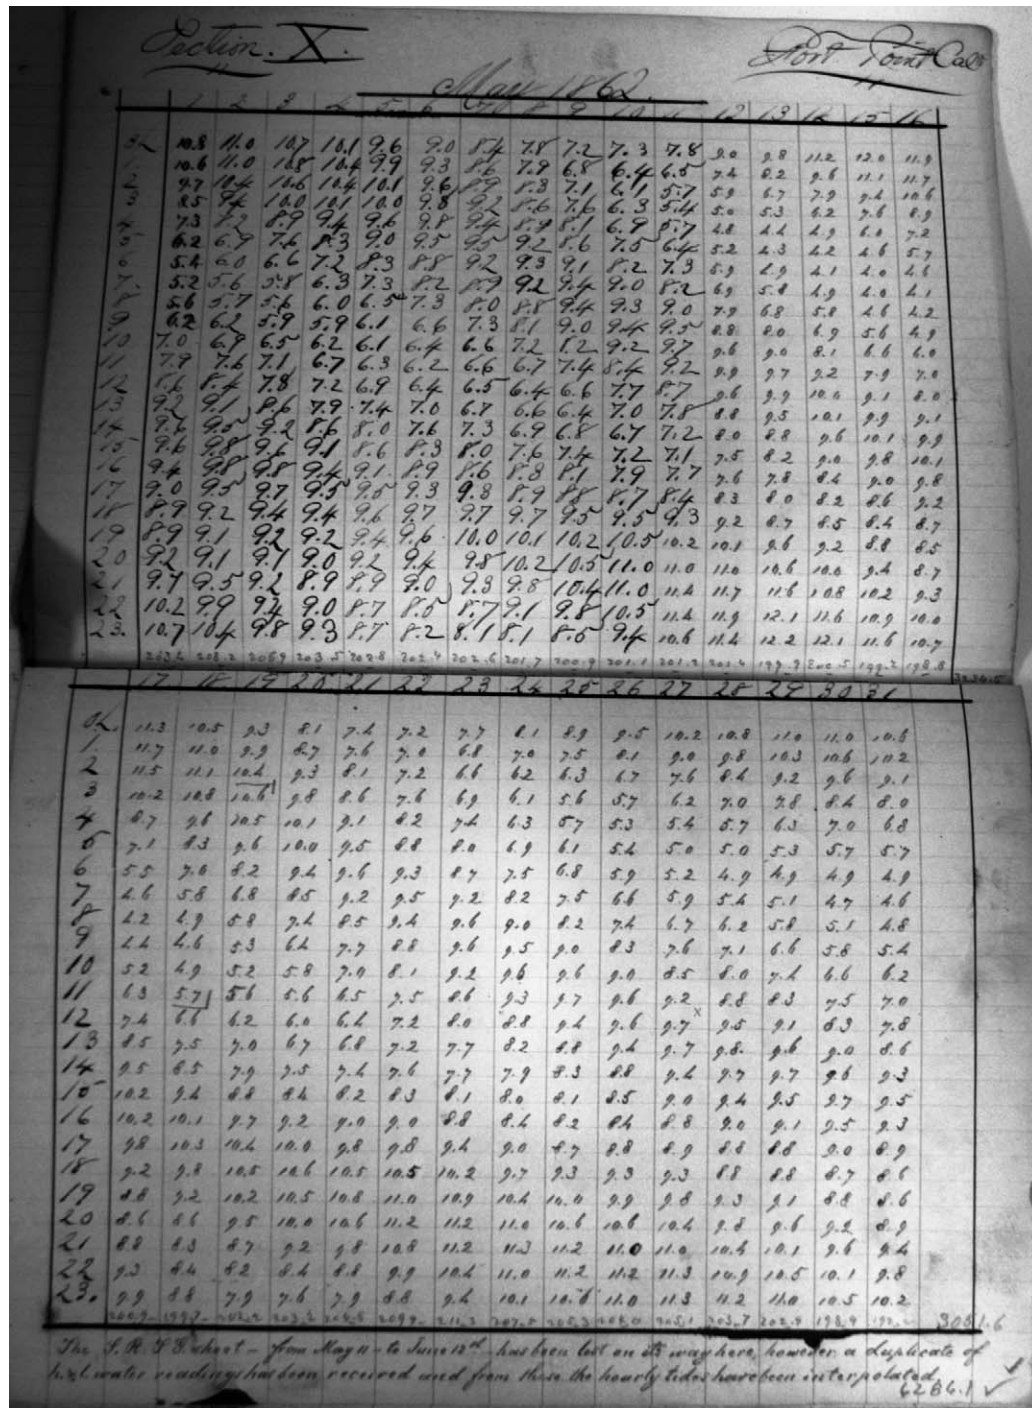 Section. X.
Fort Point Cal
May 1862.
1 2 3 4 5 6 7 8 9 10 11 12 13 14 15 16
0h 10.8 11.0 10.7 10.1 9.6 9.0 8.4 7.8 7.2 7.3 7.8 9.0 9.8 11.2 12.0 11.9
1. 10.6 11.0 10.8 10.4 9.9 9.3 8.6 7.9 6.8 6.4 6.5 7.4 8.2 9.6 11.1 11.7
2. 9.7 10.4 10.6 10.4 10.1 9.6 8.9 8.3 7.1 6.1 5.7 5.9 6.7 7.9 9.4 10.6
3. 8.5 9.4 10.0 10.1 10.0 9.8 9.2 8.6 7.6 6.3 5.4 5.0 5.3 6.2 7.6 8.9
4. 7.3 8.2 8.9 9.4 9.6 9.8 9.4 8.9 8.1 6.9 5.7 4.8 4.4 4.9 6.0 7.2
5. 6.2 6.9 7.6 8.3 9.0 9.5 9.5 9.2 8.6 7.5 6.4 5.2 4.3 4.2 4.6 5.7
6. 5.4 6.0 6.6 7.2 8.3 8.8 9.2 9.3 9.1 8.2 7.3 5.9 4.9 4.1 4.0 4.6
7. 5.2 5.6 5.8 6.3 7.3 8.2 8.9 9.2 9.4 9.0 8.2 6.9 5.8 4.9 4.0 4.1
8. 5.6 5.7 5.6 6.0 6.5 7.3 8.0 8.8 9.4 9.3 9.0 7.9 6.8 5.8 4.6 4.2
9. 6.2 6.2 5.9 5.9 6.1 6.6 7.3 8.1 9.0 9.4 9.5 8.8 8.0 6.9 5.6 4.9
10 7.0 6.9 6.5 6.2 6.1 6.4 6.6 7.2 8.2 9.2 9.7 9.6 9.0 8.1 6.6 6.0
11 7.9 7.6 7.1 6.7 6.3 6.2 6.6 6.7 7.4 8.4 9.2 9.9 9.7 9.2 7.9 7.0
12 8.6 8.4 7.8 7.2 6.9 6.4 6.5 6.4 6.6 7.7 8.7 9.6 9.9 10.0 9.1 8.0
13 9.2 9.1 8.6 7.9 7.4 7.0 6.7 6.6 6.4 7.0 7.8 8.8 9.5 10.1 9.9 9.1
14 9.6 9.5 9.2 8.6 8.0 7.6 7.3 6.9 6.8 6.7 7.2 8.0 8.8 9.6 10.1 9.9
15 9.6 9.8 9.6 9.1 8.6 8.3 8.0 7.6 7.4 7.2 7.1 7.5 8.2 9.0 9.8 10.1
16 9.4 9.8 9.8 9.4 9.1 8.9 8.6 8.3 8.1 7.9 7.7 7.6 7.8 8.4 9.0 9.8
17 9.0 9.5 9.7 9.5 9.5 9.3 9.3 8.9 8.8 8.7 8.4 8.3 8.0 8.2 8.6 9.2
18 8.9 9.2 9.4 9.4 9.6 9.7 9.7 9.7 9.5 9.5 9.3 9.2 8.7 8.5 8.4 8.7
19 8.9 9.1 9.2 9.2 9.4 9.6 10.0 10.1 10.2 10.5 10.2 10.1 9.6 9.2 8.8 8.5
20 9.2 9.1 9.1 9.0 9.2 9.4 9.8 10.2 10.5 11.0 11.0 11.0 10.6 10.0 9.4 8.7
21 9.7 9.5 9.2 8.9 8.9 9.0 9.3 9.8 10.4 11.0 11.4 11.7 11.6 10.8 10.2 9.3
22 10.2 9.9 9.4 9.0 8.7 8.5 8.7 9.1 9.8 10.5 11.4 11.9 12.1 11.6 10.9 10.0
23. 10.7 10.4 9.8 9.3 8.7 8.2 8.1 8.1 8.5 9.4 10.6 11.4 12.2 12.1 11.6 10.7
203.4 208.2 206.9 203.5 202.8 202.4 202.6 201.7 200.9 201.1 201.2 201.4 199.9 200.5 199.2 198.8 3234.5
17 18 19 20 21 22 23 24 25 26 27 28 29 30 31
0h. 11.3 10.5 9.3 8.1 7.4 7.2 7.7 8.1 8.9 9.5 10.2 10.8 11.0 11.0 10.6
1. 11.7 11.0 9.9 8.7 7.6 7.0 6.8 7.0 7.5 8.1 9.0 9.8 10.3 10.6 10.2
2 11.5 11.1 10.4 9.3 8.1 7.2 6.6 6.2 6.3 6.7 7.6 8.4 9.2 9.6 9.1
3 10.2 10.8 10.6 9.8 8.6 7.6 6.9 6.1 5.6 5.7 6.2 7.0 7.8 8.4 8.0
4 8.7 9.6 10.5 10.1 9.1 8.2 7.4 6.3 5.7 5.3 5.4 5.7 6.3 7.0 6.8
5 7.1 8.3 9.6 10.0 9.5 8.8 8.0 6.9 6.1 5.4 5.0 5.0 5.3 5.7 5.7
6 5.5 7.0 8.2 9.4 9.6 9.3 8.7 7.5 6.8 5.9 5.2 4.9 4.9 4.9 4.9
7 4.6 5.8 6.8 8.5 9.2 9.5 9.2 8.2 7.5 6.6 5.9 5.4 5.1 4.7 4.6
8 4.2 4.9 5.8 7.4 8.5 9.4 9.6 9.0 8.2 7.4 6.7 6.2 5.8 5.1 4.8
9 4.4 4.6 5.3 6.4 7.7 8.8 9.6 9.5 9.0 8.3 7.6 7.1 6.6 5.8 5.4
10 5.2 4.9 5.2 5.8 7.0 8.1 9.2 9.6 9.6 9.0 8.5 8.0 7.4 6.6 6.2
11 6.3 5.7 5.6 5.6 6.5 7.5 8.6 9.3 9.7 9.6 9.2 8.8 8.3 7.5 7.0
12 7.4 6.6 6.2 6.0 6.4 7.2 8.0 8.8 9.4 9.6 9.7 x 9.5 9.1 8.3 7.8
13 8.5 7.5 7.0 6.7 6.8 7.2 7.7 8.2 8.8 9.4 9.7 9.8. 9.6 9.0 8.6
14 9.5 8.5 7.9 7.5 7.4 7.6 7.7 7.9 8.3 8.8 9.4 9.7 9.7 9.6 9.3
15 10.2 9.4 8.8 8.4 8.2 8.3 8.1 8.0 8.1 8.5 9.0 9.4 9.5 9.7 9.5
16 10.2 10.1 9.7 9.2 9.0 9.0 8.8 8.4 8.2 8.4 8.8 9.0 9.1 9.5 9.3
17 9.8 10.3 10.4 10.0 9.8 9.8 9.4 9.0 8.7 8.8 8.9 8.8 8.8 9.0 8.9
18 9.2 9.8 10.5 10.6 10.5 10.5 10.2 9.7 9.3 9.3 9.3 8.8 8.8 8.7 8.6
19 8.8 9.2 10.2 10.5 10.8 11.0 10.9 10.4 10.0 9.9 9.8 9.3 9.1 8.8 8.6
20 8.6 8.6 9.5 10.0 10.6 11.2 11.2 11.0 10.6 10.6 10.4 9.8 9.6 9.2 8.9
21 8.8 8.3 8.7 9.2 9.8 10.8 11.2 11.3 11.2 11.0 11.0 10.4 10.1 9.6 9.4
22 9.3 8.4 8.2 8.4 8.8 9.9 10.4 11.0 11.2 11.2 11.3 10.9 10.5 10.1 9.8
23. 9.9 8.8 7.9 7.6 7.9 8.8 9.4 10.1 10.6 11.0 11.3 11.2 11.0 10.5 10.2
203.7 202.9 198.9 3051.6
The S.R. T.G. sheet – from May 11 – to June 12th – has been lost on its way here, however a duplicate of
h. & l. water readings has been received and from these the hourly tides have been interpolated.
6286.1 ✓